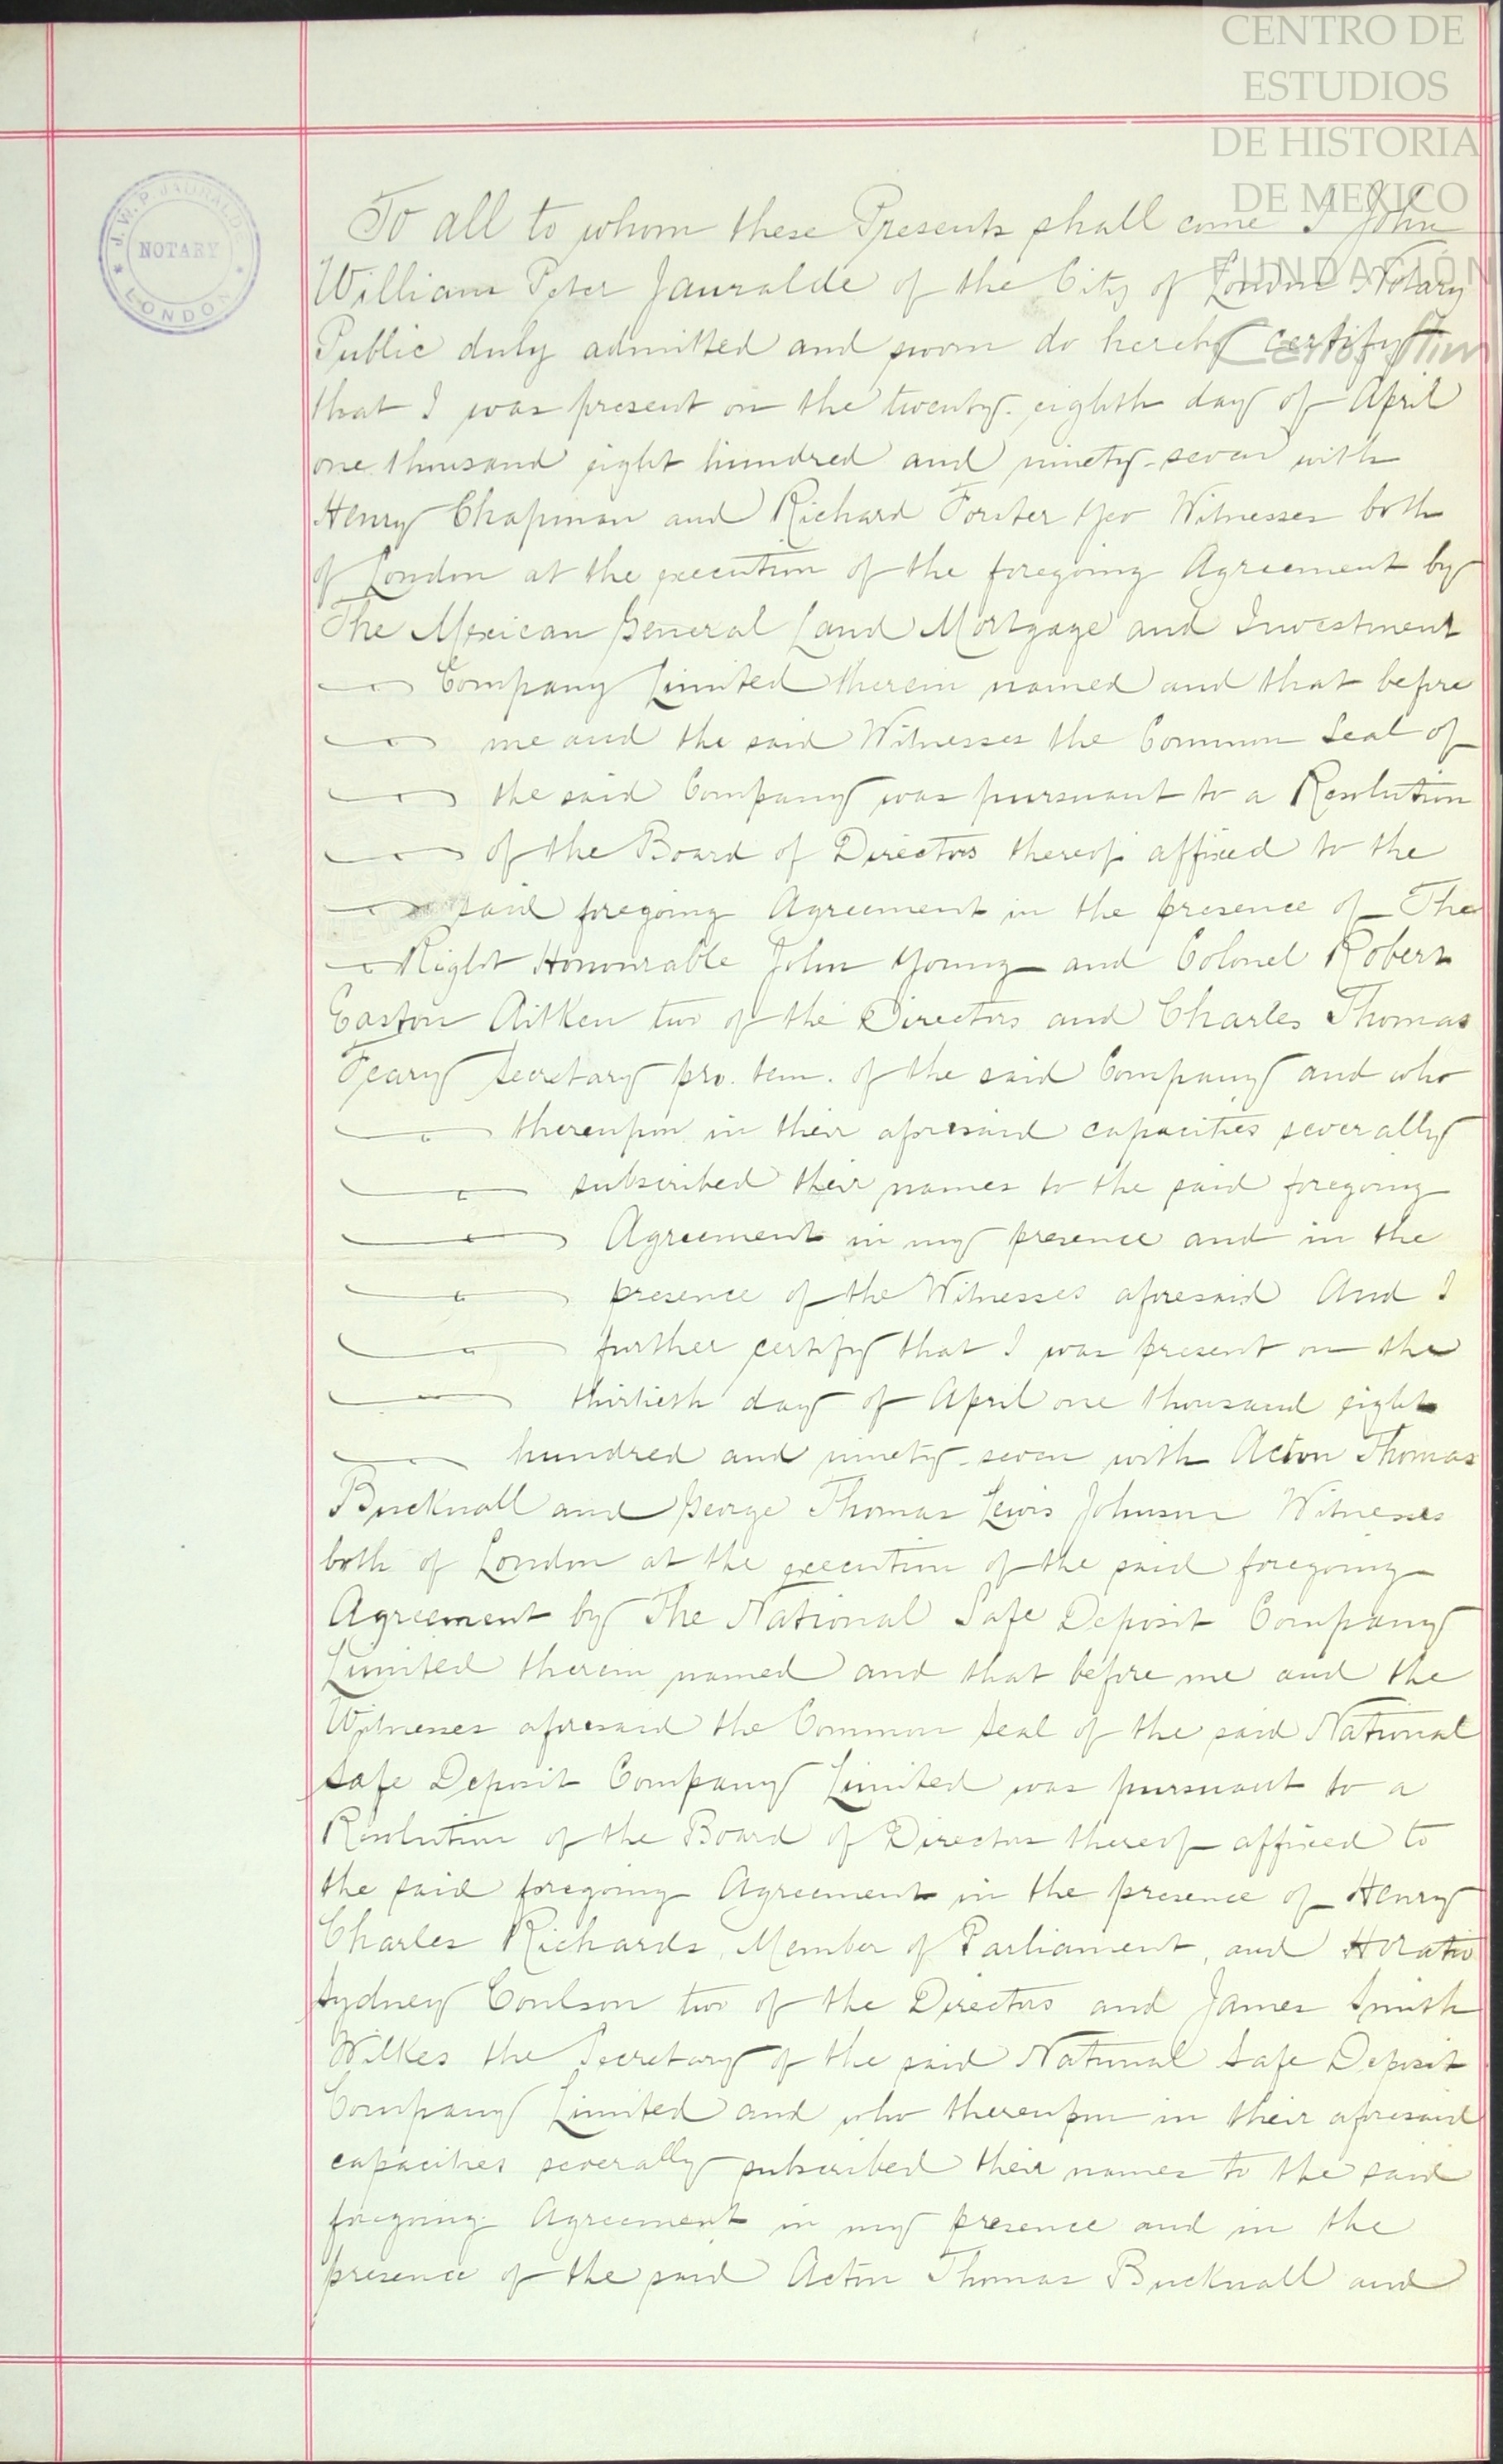 CENTRO DE
ESTUDIOS
DE HISTORIA
DE MEXICO
FUNDACIÓN
J. W. P. JAURALDE
NOTARY
LONDON
To all to whom these Presents shall come I John
William Peter Jauralde of the City of London Notary
Public duly admitted and sworn do hereby certify
that I was present on the twenty-eighth day of April
one thousand eight hundred and ninety-seven with
Henry Chapman and Richard Forster Yeo Witnesses both
of London at the execution of the foregoing Agreement by
The Mexican General Land Mortgage and Investment
Company Limited therein named and that before
me and the said Witnesses the Common Seal of
the said Company was pursuant to a Resolution
of the Board of Directors thereof affixed to the
said foregoing Agreement in the presence of The
Right Honourable John Young and Colonel Robert
Easton Aitken two of the Directors and Charles Thomas
Feary Secretary pro. tem. of the said Company and who
thereupon in their aforesaid capacities severally
subscribed their names to the said foregoing
Agreement in my presence and in the
presence of the Witnesses aforesaid And I
further certify that I was present on the
thirtieth day of April one thousand eight
hundred and ninety-seven with Acton Thomas
Bucknall and George Thomas Lewis Johnson Witnesses
both of London at the execution of the said foregoing
Agreement by The National Safe Deposit Company
Limited therein named and that before me and the
Witnesses aforesaid the Common Seal of the said National
Safe Deposit Company Limited was pursuant to a
Resolution of the Board of Directors thereof affixed to
the said foregoing Agreement in the presence of Henry
Charles Richards, Member of Parliament, and Horatio
Sydney Coulson two of the Directors and James Smith
Wilkes the Secretary of the said National Safe Deposit
Company Limited and who thereupon in their aforesaid
capacities severally subscribed their names to the said
foregoing Agreement in my presence and in the
presence of the said Acton Thomas Bucknall and